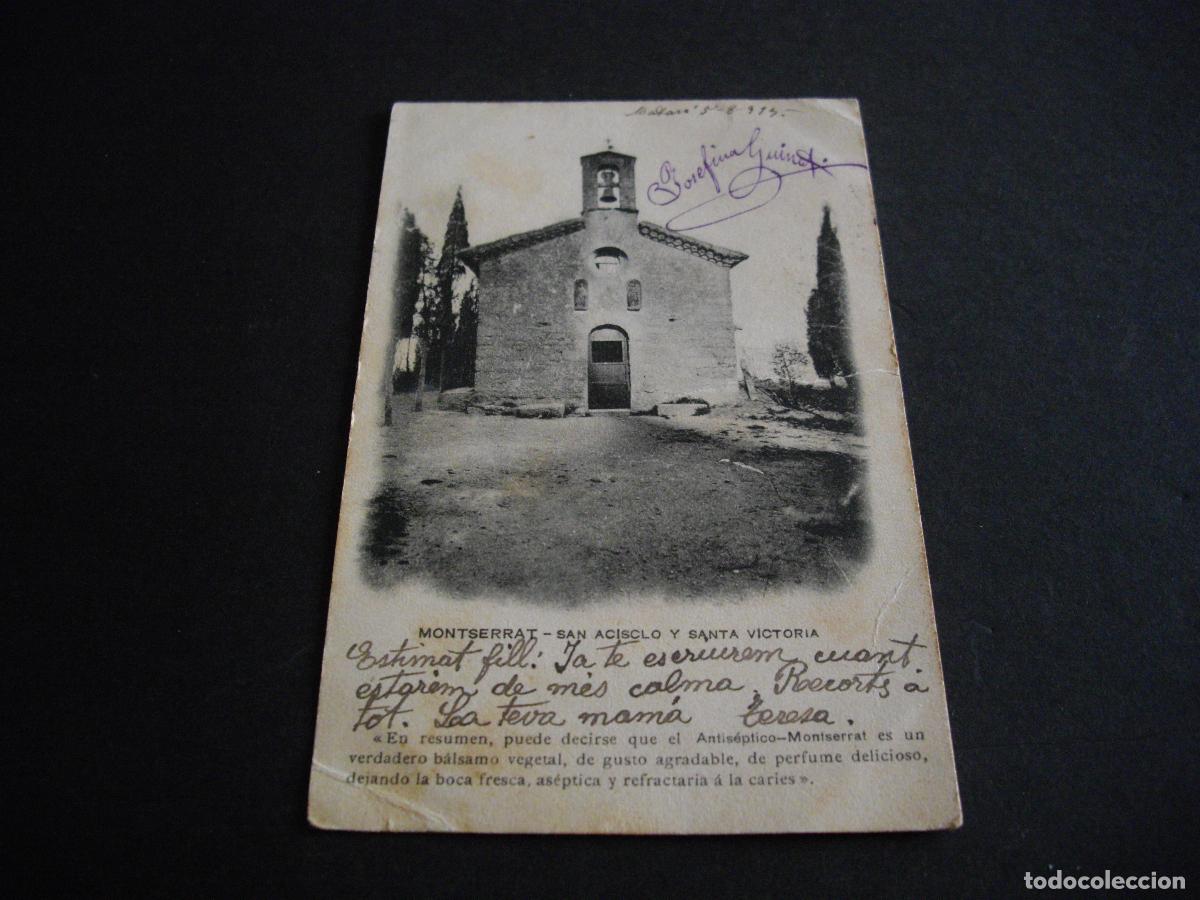 Mataró 5-8-913.
Josefina Guinart
MONTSERRAT - SAN ACISCLO Y SANTA VICTORIA
Estimat fill: Ja te escriurem cuant
estarèm de mès calma. Recorts á
tót. La teva mamá Teresa.
«En resumen, puede decirse que el Antiséptico-Montserrat es un
verdadero bálsamo vegetal, de gusto agradable, de perfume delicioso,
dejando la boca fresca, aséptica y refractaria á la caries».
todocoleccion